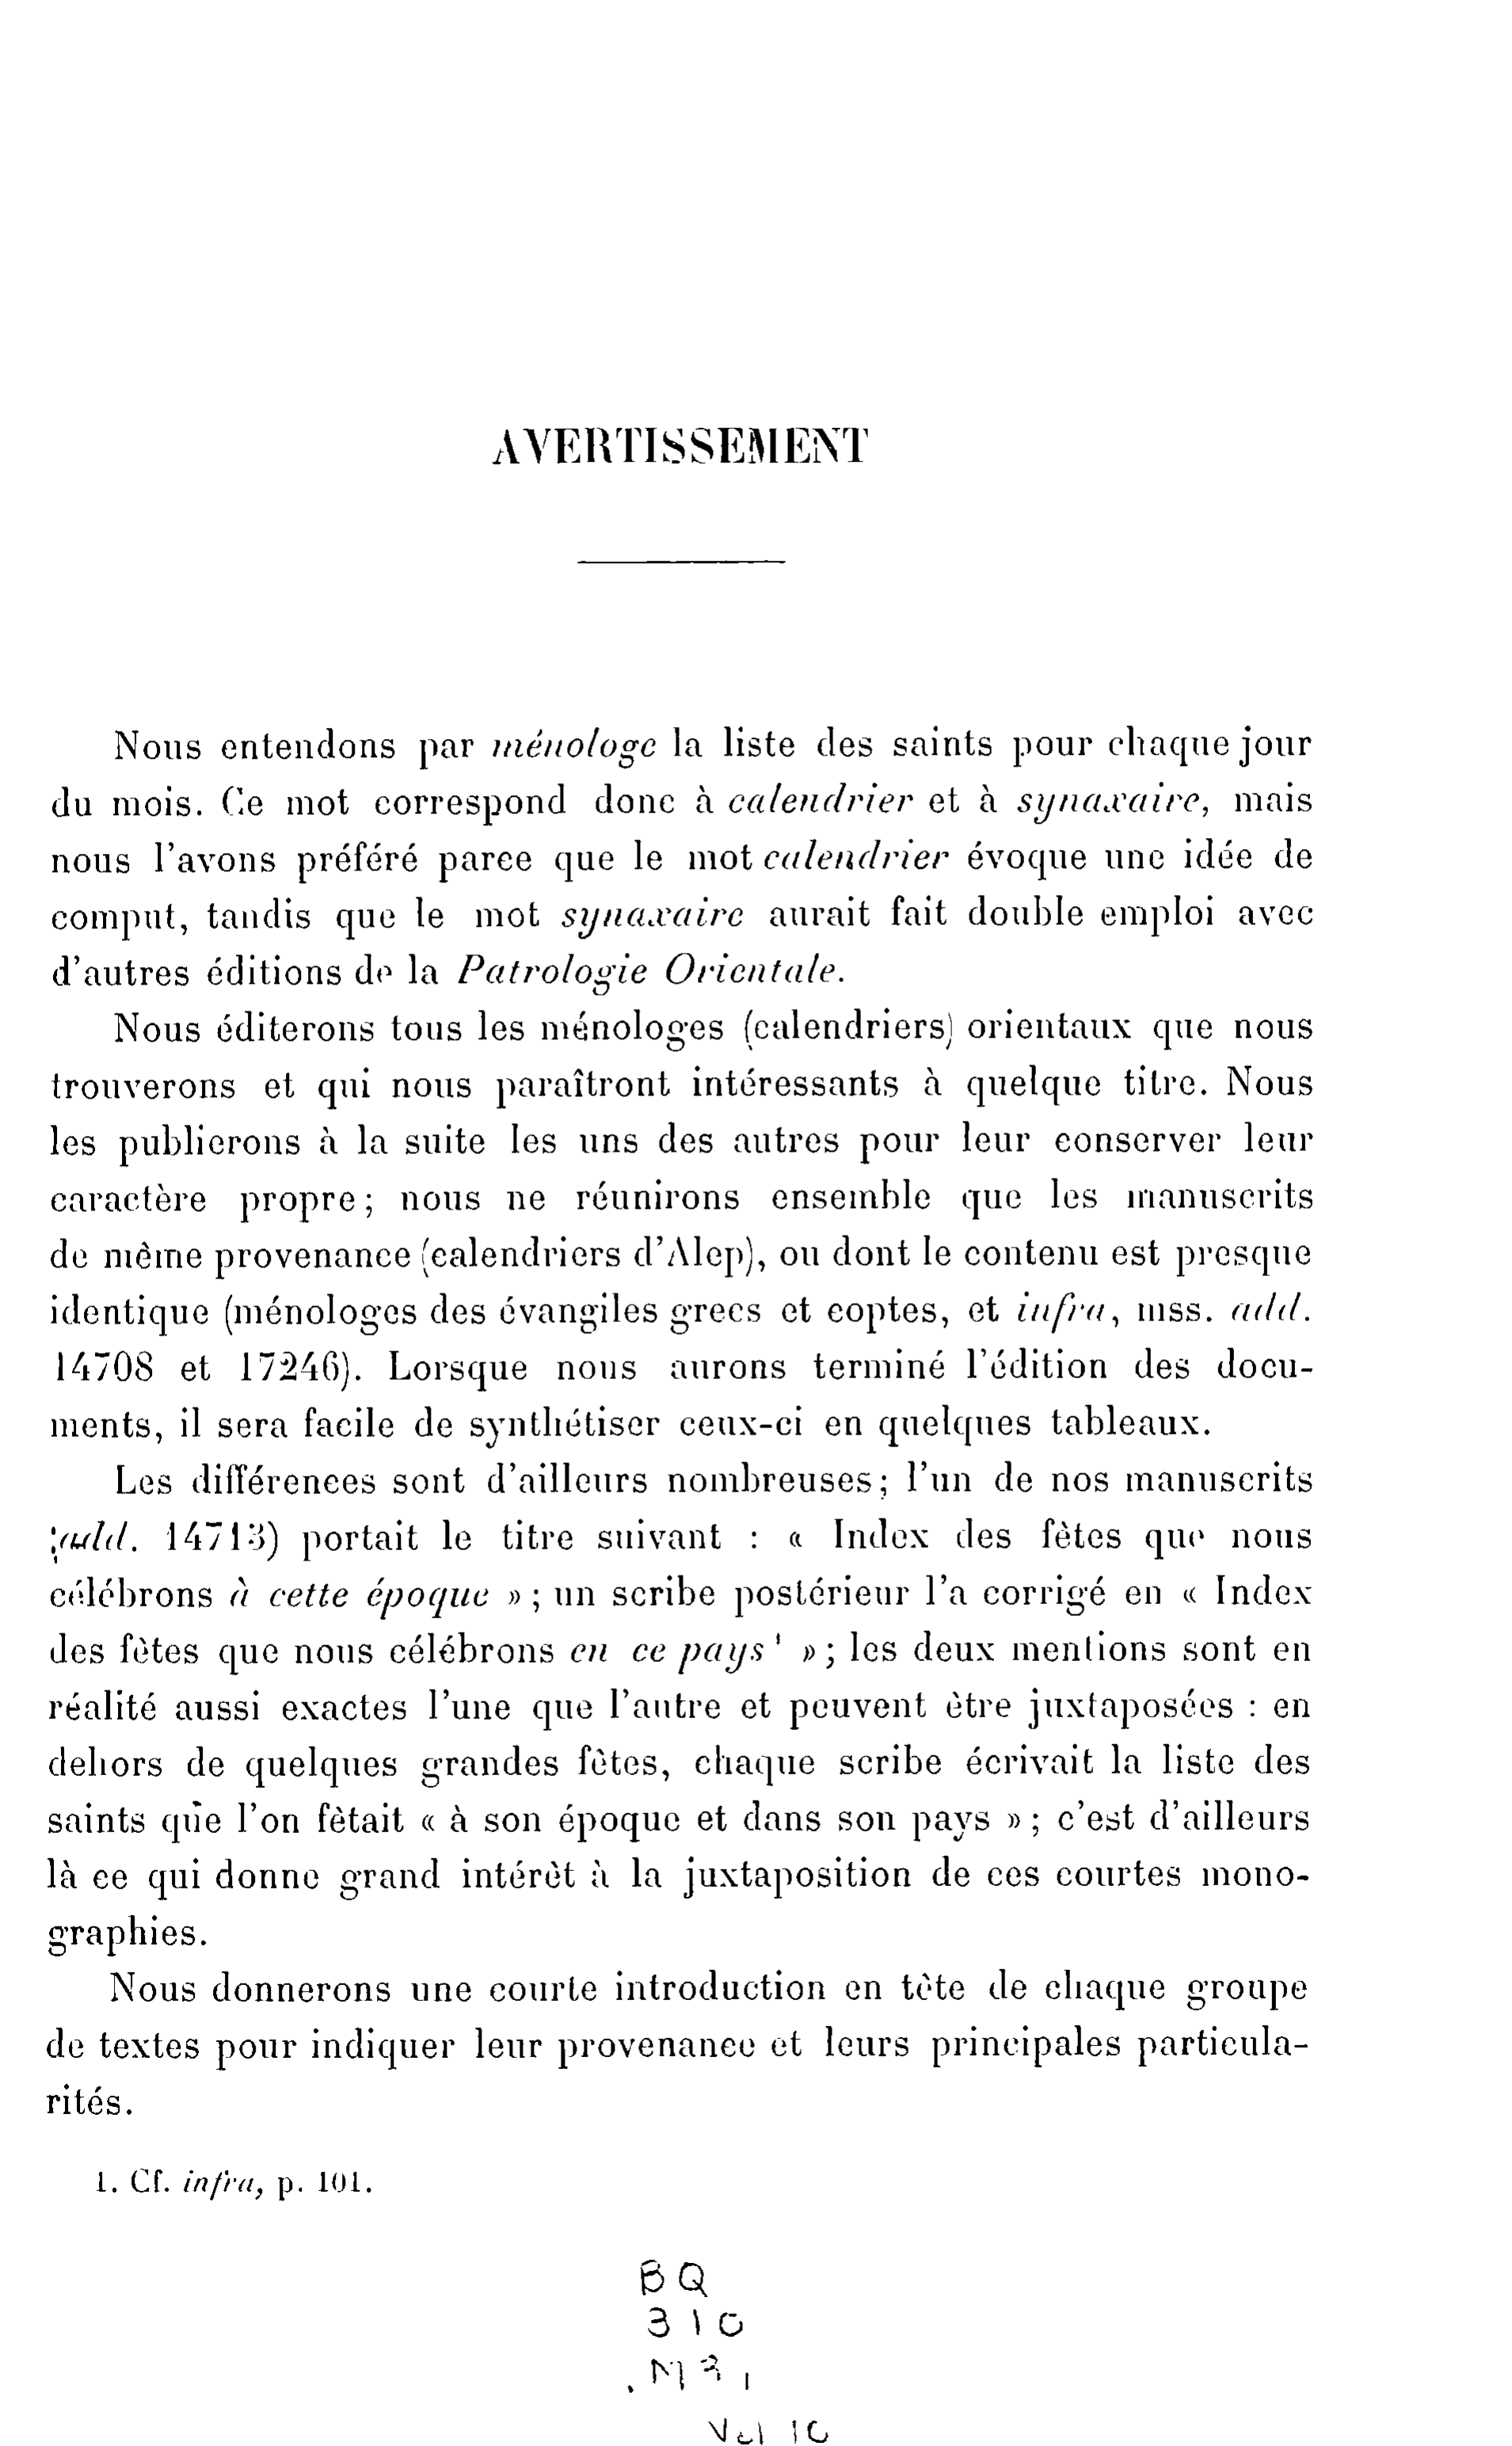 AVERTISSEMENT
Nous entendons par ménologe la liste des saints pour chaque jour
du mois. Ce mot correspond donc à calendrier et à synaxaire, mais
nous l'avons préféré parce que le mot calendrier évoque une idée de
comput, tandis que le mot synaxaire aurait fait double emploi avec
d'autres éditions de la Patrologie Orientale.
Nous éditerons tous les ménologes (calendriers) orientaux que nous
trouverons et qui nous paraîtront intéressants à quelque titre. Nous
les publierons à la suite les uns des autres pour leur conserver leur
caractère propre; nous ne réunirons ensemble que les manuscrits
de même provenance (calendriers d'Alep), ou dont le contenu est presque
identique (ménologes des évangiles grecs et coptes, et infra, mss. add.
14708 et 17246). Lorsque nous aurons terminé l'édition des docu-
ments, il sera facile de synthétiser ceux-ci en quelques tableaux.
Les différences sont d'ailleurs nombreuses; l'un de nos manuscrits
(add. 14713) portait le titre suivant : « Index des fêtes que nous
célébrons à cette époque » ; un scribe postérieur l'a corrigé en « Index
des fêtes que nous célébrons en ce pays ¹ » ; les deux mentions sont en
réalité aussi exactes l'une que l'autre et peuvent être juxtaposées : en
dehors de quelques grandes fêtes, chaque scribe écrivait la liste des
saints que l'on fêtait « à son époque et dans son pays » ; c'est d'ailleurs
là ce qui donne grand intérêt à la juxtaposition de ces courtes mono-
graphies.
Nous donnerons une courte introduction en tête de chaque groupe
de textes pour indiquer leur provenance et leurs principales particula-
rités.
1. Cf. infra, p. 101.
BQ
310
Vol 10